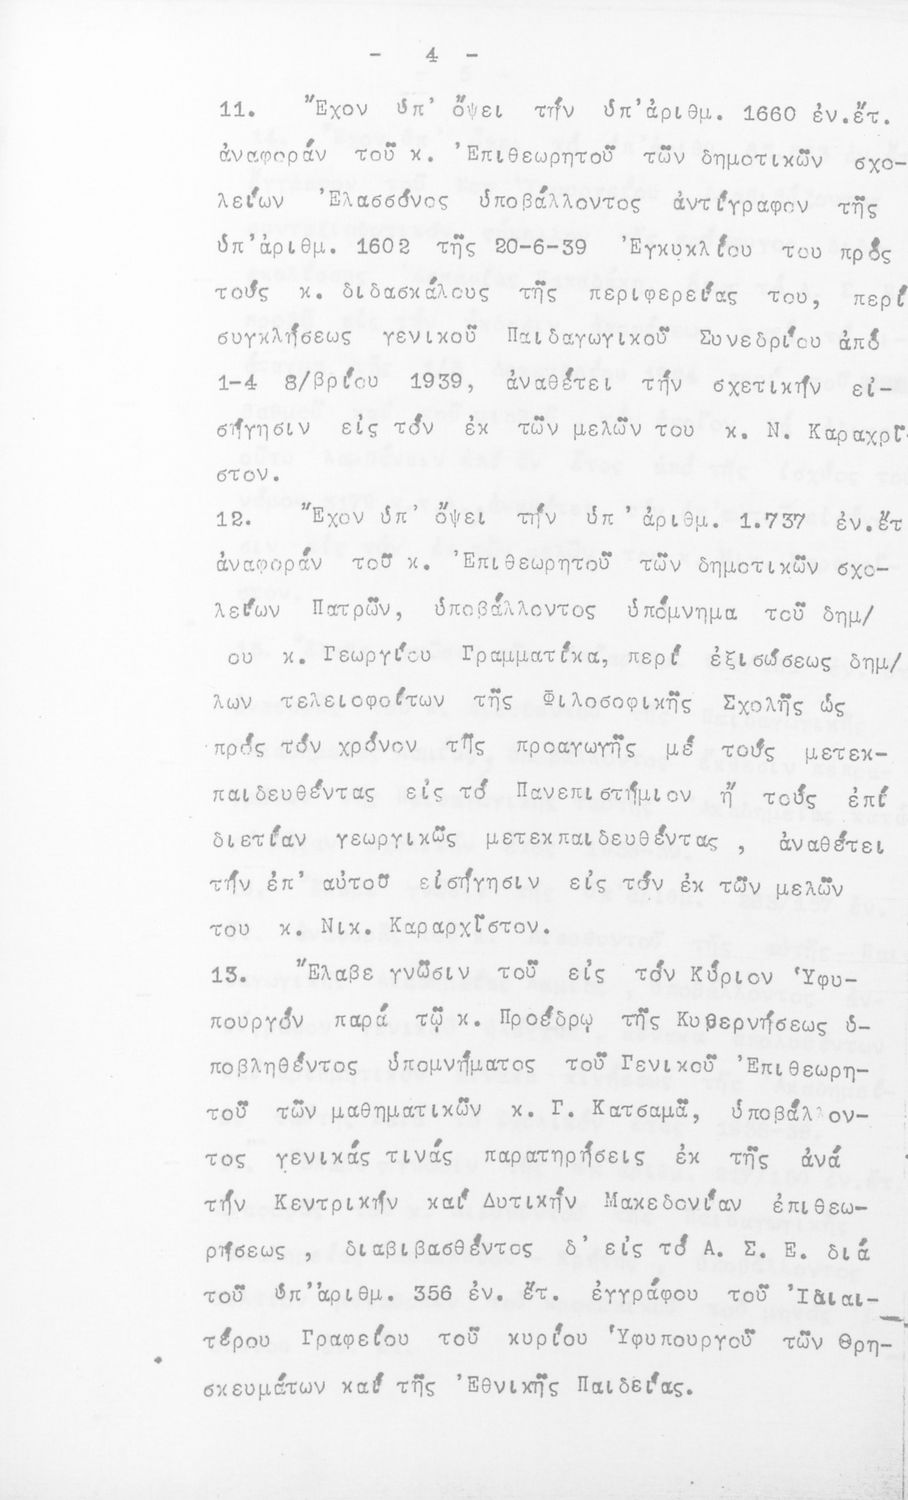 - 4 -
11. Ἔχον ὑπ' ὄψει τήν ὑπ'ἀριθμ. 1660 ἐν.ἔτ.
ἀναφοράν τοῦ κ. Ἐπιθεωρητοῦ τῶν δημοτικῶν σχο-
λείων Ἐλασσόνος ὑποβάλλοντος ἀντίγραφον τῆς
ὑπ'ἀριθμ. 1602 τῆς 20-6-39 Ἐγκυκλίου του πρός
τούς κ. διδασκάλους τῆς περιφερείας του, περί
συγκλήσεως γενικοῦ Παιδαγωγικοῦ Συνεδρίου ἀπό
1-4 8/βρίου 1939, ἀναθέτει τήν σχετικήν εἰ-
σήγησιν εἰς τόν ἐκ τῶν μελῶν του κ. Ν. Καραχρῖ-
στον.
12. Ἔχον ὑπ' ὄψει τήν ὑπ'ἀριθμ. 1.737 ἐν.ἔτ
ἀναφοράν τοῦ κ. Ἐπιθεωρητοῦ τῶν δημοτικῶν σχο-
λείων Πατρῶν, ὑποβάλλοντος ὑπόμνημα τοῦ δημ/
ου κ. Γεωργίου Γραμματίκα, περί ἐξισώσεως δημ/
λων τελειοφοίτων τῆς Φιλοσοφικῆς Σχολῆς ὡς
πρός τόν χρόνον τῆς προαγωγῆς μέ τούς μετεκ-
παιδευθέντας εἰς τό Πανεπιστήμιον ἤ τούς ἐπί
διετίαν γεωργικῶς μετεκπαιδευθέντας , ἀναθέτει
τήν ἐπ' αὐτοῦ εἰσήγησιν εἰς τόν ἐκ τῶν μελῶν
του κ. Νικ. Καραρχῖστον.
13. Ἔλαβε γνῶσιν τοῦ εἰς τόν Κύριον Ὑφυ-
πουργόν παρά τῷ κ. Προέδρῳ τῆς Κυβερνήσεως ὑ-
ποβληθέντος ὑπομνήματος τοῦ Γενικοῦ Ἐπιθεωρη-
τοῦ τῶν μαθηματικῶν κ. Γ. Κατσαμᾶ, ὑποβάλλον-
τος γενικάς τινάς παρατηρήσεις ἐκ τῆς ἀνά
τήν Κεντρικήν καί Δυτικήν Μακεδονίαν ἐπιθεω-
ρήσεως , διαβιβασθέντος δ' εἰς τό Α. Σ. Ε. διά
τοῦ ὑπ'ἀριθμ. 356 ἐν. ἔτ. ἐγγράφου τοῦ Ἰδιαι-
τέρου Γραφείου τοῦ κυρίου Ὑφυπουργοῦ τῶν Θρη-
σκευμάτων καί τῆς Ἐθνικῆς Παιδείας.